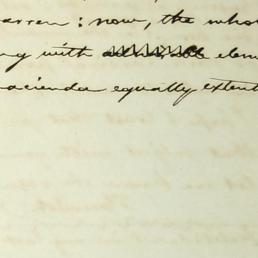 arren: now, the who
ng with elem
acienda equally extent